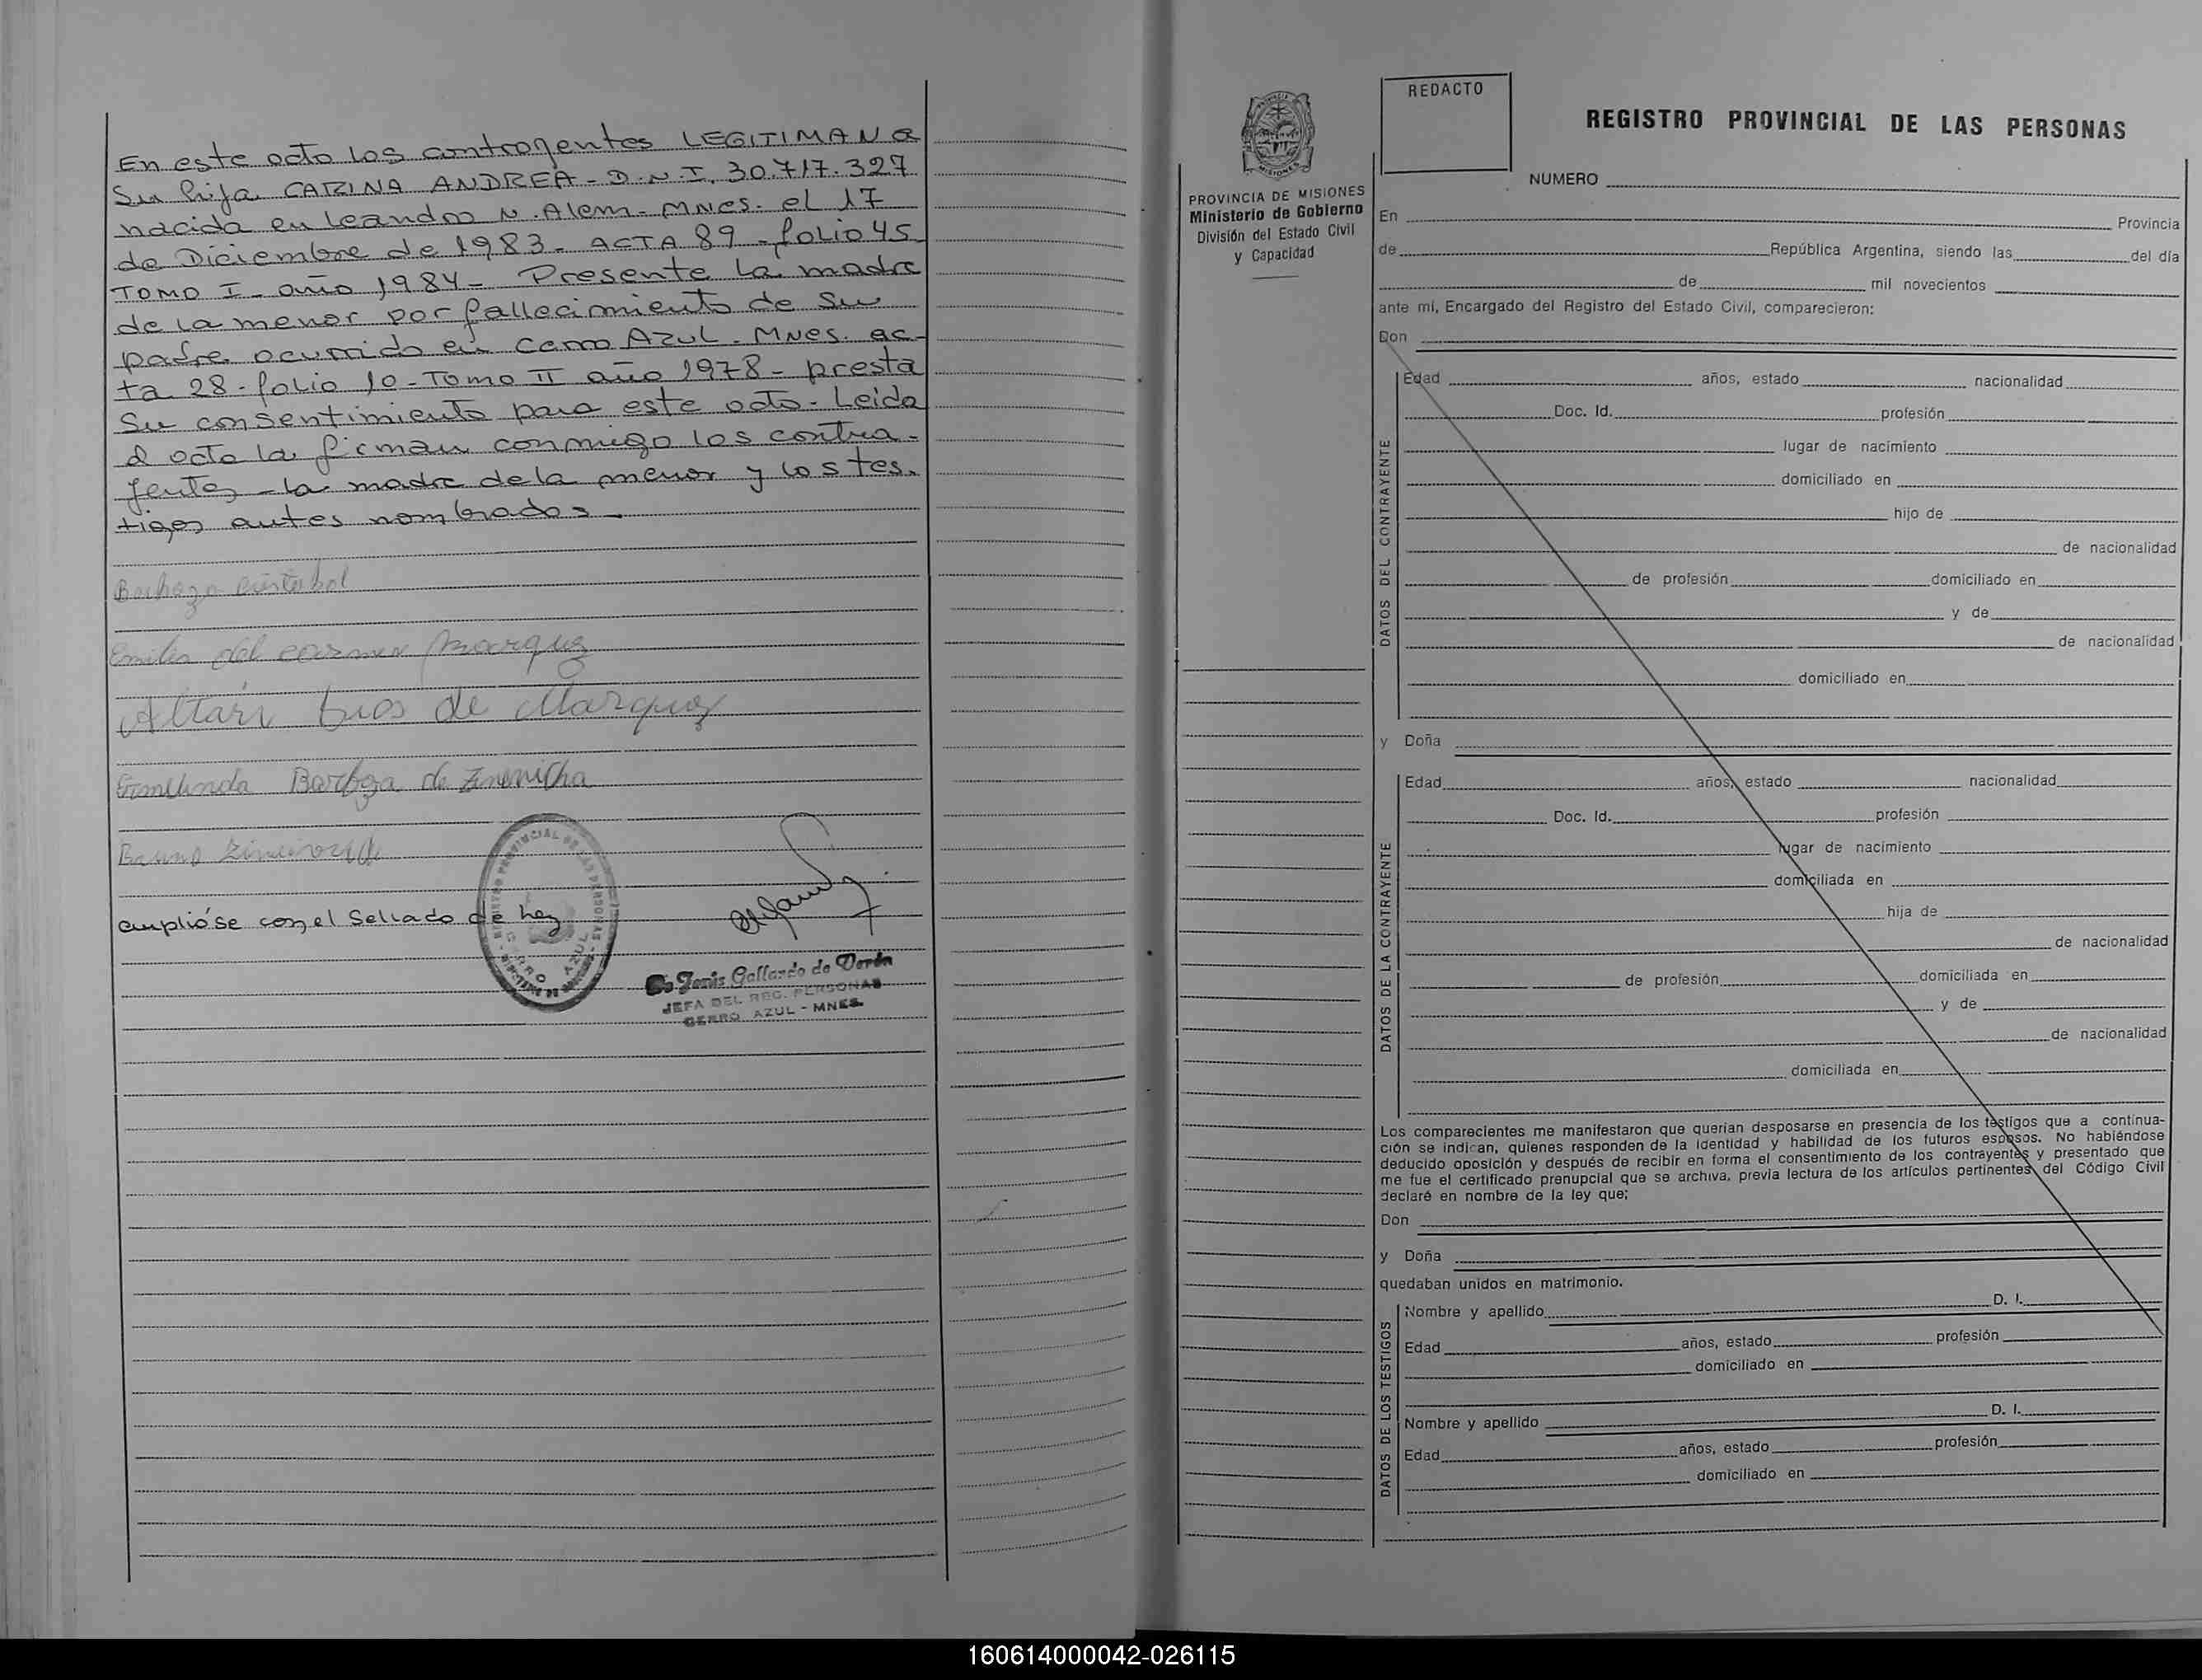 En este acto los contrayentes LEGITIMAN a
Su hija CARINA ANDREA - D.N.I. 30.717.327
nacida en Leandro N. Alem - MNES. el 17
de Diciembre de 1983 - ACTA 89 - folio 45
TOMO I - año 1984 - Presente la madre
de la menor por fallecimiento de su
padre ocurrido en Cerro Azul - MNES. ac-
ta 28 - folio 10 - Tomo II año 1978 - presta
Su consentimiento para este acto - Leida
el acta la firman conmigo los contra-
yentes - la madre de la menor y los tes-
tigos antes nombrados -
Emilia del carmen Marquez
de Marquez
Barboza de
Bruno
ampliòse con el Sellado de ley
REGISTRO PROVINCIAL DE LAS PERSONAS
CERRO AZUL
Jesús Gallardo de Verón
JEFA DEL REG. PERSONAS
CERRO AZUL - MNES.
PROVINCIA DE MISIONES
Ministerio de Gobierno
División del Estado Civil
y Capacidad
REDACTO
REGISTRO PROVINCIAL DE LAS PERSONAS
NUMERO
En Provincia
de República Argentina, siendo las del día
de mil novecientos
ante mi, Encargado del Registro del Estado Civil, comparecieron:
Don
DATOS DEL CONTRAYENTE
Edad años, estado nacionalidad
Doc. Id. profesión
lugar de nacimiento
domiciliado en
hijo de
de nacionalidad
de profesión domiciliado en
y de
de nacionalidad
domiciliado en
y Doña
DATOS DE LA CONTRAYENTE
Edad años, estado nacionalidad
Doc. Id. profesión
lugar de nacimiento
domiciliada en
hija de
de nacionalidad
de profesión domiciliada en
y de
de nacionalidad
domiciliada en
Los comparecientes me manifestaron que querian desposarse en presencia de los testigos que a continua-
ción se indican, quienes responden de la identidad y habilidad de los futuros esposos. No habiéndose
deducido oposición y después de recibir en forma el consentimiento de los contrayentes y presentado que
me fue el certificado prenupcial que se archiva, previa lectura de los artículos pertinentes del Código Civil
declaré en nombre de la ley que;
Don
y Doña
quedaban unidos en matrimonio.
DATOS DE LOS TESTIGOS
Nombre y apellido D. I.
Edad años, estado profesión
domiciliado en
Nombre y apellido D. I.
Edad años, estado profesión
domiciliado en
160614000042-026115